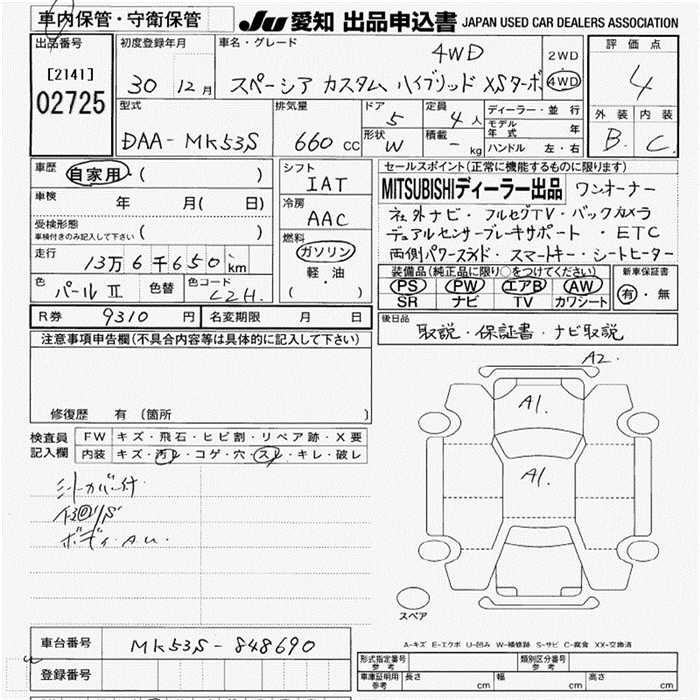 車内保管・守衛保管
JU 愛知 出品申込書 JAPAN USED CAR DEALERS ASSOCIATION
出品番号 初度登録年月 車名・グレード 4WD 2WD 評価点
[2141] 30 12月 スペーシア カスタム ハイブリッド XSターボ 4WD 4
02725 外装 内装
型式 排気量 ドア 5 定員 4人 ディーラー・並行
DAA-MK53S 660cc 形状 W 積載 - kg モデル年式 年 B. C.
ハンドル 左・右
車歴 自家用・( ) シフト IAT セールスポイント(正常に機能するものに限ります)
車検 年 月( 日) 冷房 AAC MITSUBISHIディーラー出品 ワンオーナー
受検形態 社外ナビ・フルセグTV・バックカメラ
車検付きのみ記入して下さい ( ) 燃料 デュアルセンサーブレーキサポート・ETC
走行 13万6千650km ガソリン 両側パワースライド・スマートキー・シートヒーター
軽・油 装備品(純正品に限り○をつけてください) 新車保証書
色 パールII 色替 色コード CZH. ( ) PS PW エアB AW 有・無
SR ナビ TV カワシート
R券 9310円 名変期限 月 日 後日品
取説・保証書・ナビ取説
注意事項申告欄(不具合内容等は具体的に記入して下さい)
A2.
A1.
修復歴 有(箇所 )
検査員 FW キズ・飛石・ヒビ割・リペア跡・X要
記入欄 内装 キズ・汚レ・コゲ・穴・スレ・キレ・破レ
A1.
シートカバー付
ボディ.AU.
スペア
A-キズ E-エクボ U-凹み W-補修跡 S-サビ C-腐食 XX-交換済
車台番号 MK53S-848690
型式指定番号 参考 類別区分番号 参考
登録番号 車庫証明用 参考 長さ cm 幅 cm 高さ cm